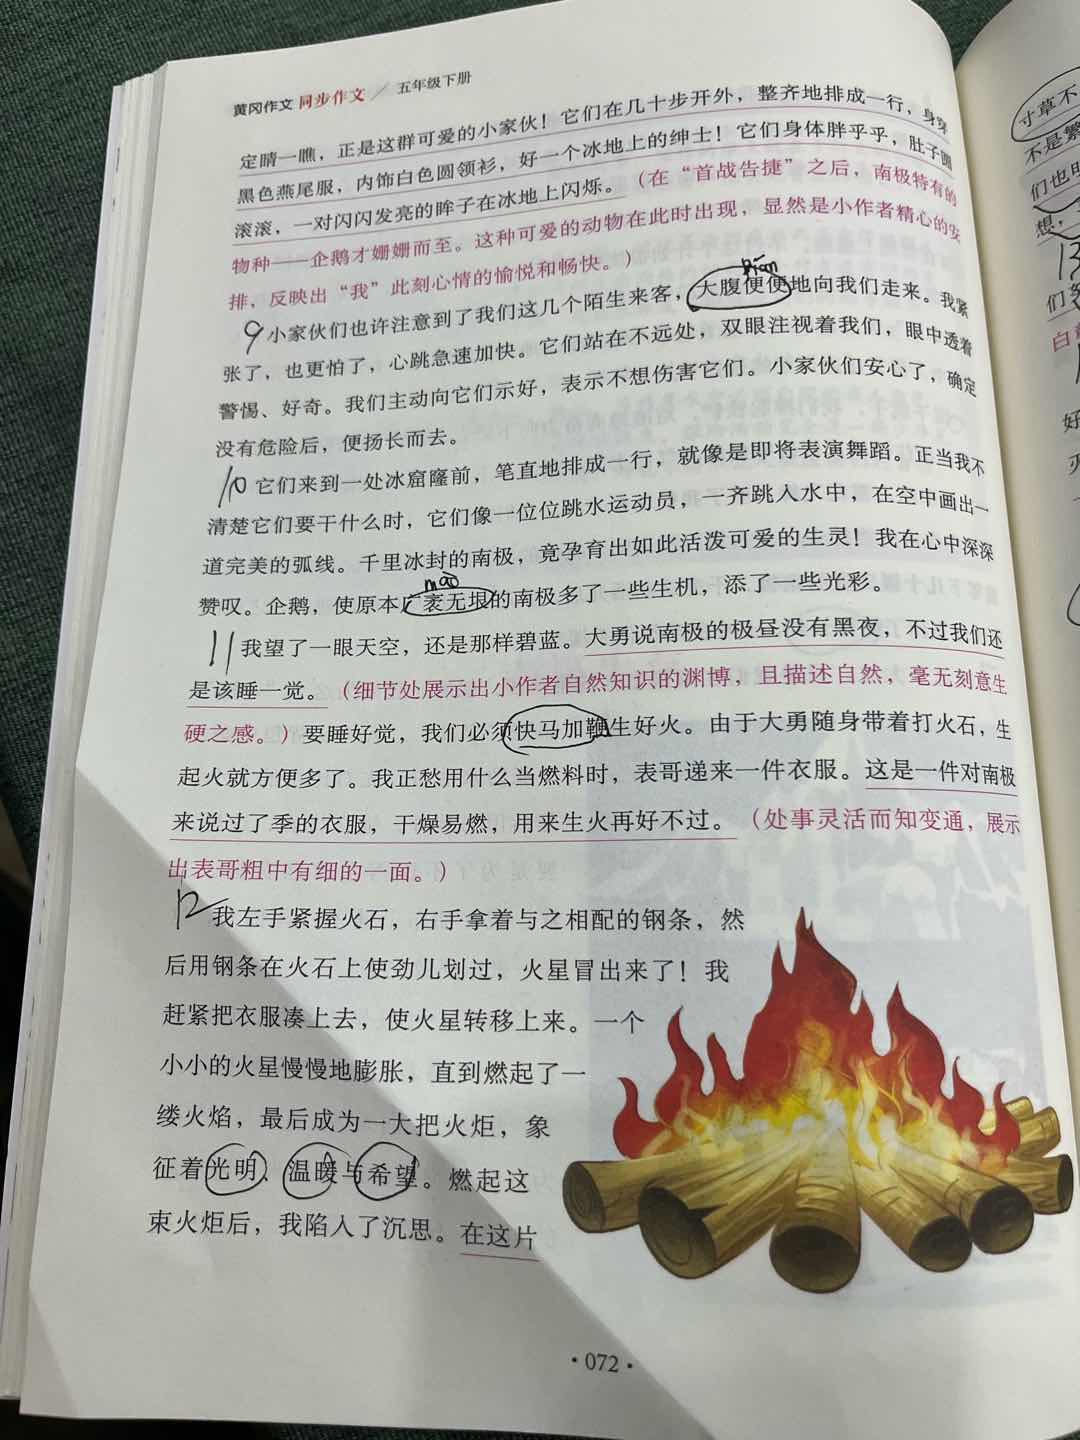 黄冈作文 同步作文 / 五年级下册
定睛一瞧，正是这群可爱的小家伙！它们在几十步开外，整齐地排成一行，身穿
黑色燕尾服，内饰白色圆领衫，好一个冰地上的绅士！它们身体胖乎乎，肚子圆
滚滚，一对闪闪发亮的眸子在冰地上闪烁。（在“首战告捷”之后，南极特有的
物种——企鹅才姗姗而至。这种可爱的动物在此时出现，显然是小作者精心的安
排，反映出“我”此刻心情的愉悦和畅快。）
pián
9 小家伙们也许注意到了我们这几个陌生来客，大腹便便地向我们走来。我紧
张了，也更怕了，心跳急速加快。它们站在不远处，双眼注视着我们，眼中透着
警惕、好奇。我们主动向它们示好，表示不想伤害它们。小家伙们安心了，确定
没有危险后，便扬长而去。
10 它们来到一处冰窟窿前，笔直地排成一行，就像是即将表演舞蹈。正当我不
清楚它们要干什么时，它们像一位位跳水运动员，一齐跳入水中，在空中画出一
道完美的弧线。千里冰封的南极，竟孕育出如此活泼可爱的生灵！我在心中深深
mào
赞叹。企鹅，使原本广袤无垠的南极多了一些生机，添了一些光彩。
11 我望了一眼天空，还是那样碧蓝。大勇说南极的极昼没有黑夜，不过我们还
是该睡一觉。（细节处展示出小作者自然知识的渊博，且描述自然，毫无刻意生
硬之感。）要睡好觉，我们必须快马加鞭生好火。由于大勇随身带着打火石，生
起火就方便多了。我正愁用什么当燃料时，表哥递来一件衣服。这是一件对南极
来说过了季的衣服，干燥易燃，用来生火再好不过。（处事灵活而知变通，展示
出表哥粗中有细的一面。）
12 我左手紧握火石，右手拿着与之相配的钢条，然
后用钢条在火石上使劲儿划过，火星冒出来了！我
赶紧把衣服凑上去，使火星转移上来。一个
小小的火星慢慢地膨胀，直到燃起了一
缕火焰，最后成为一大把火炬，象
征着光明、温暖与希望。燃起这
束火炬后，我陷入了沉思。在这片
·072·
寸草不
不是
们也
想，
们
白
好